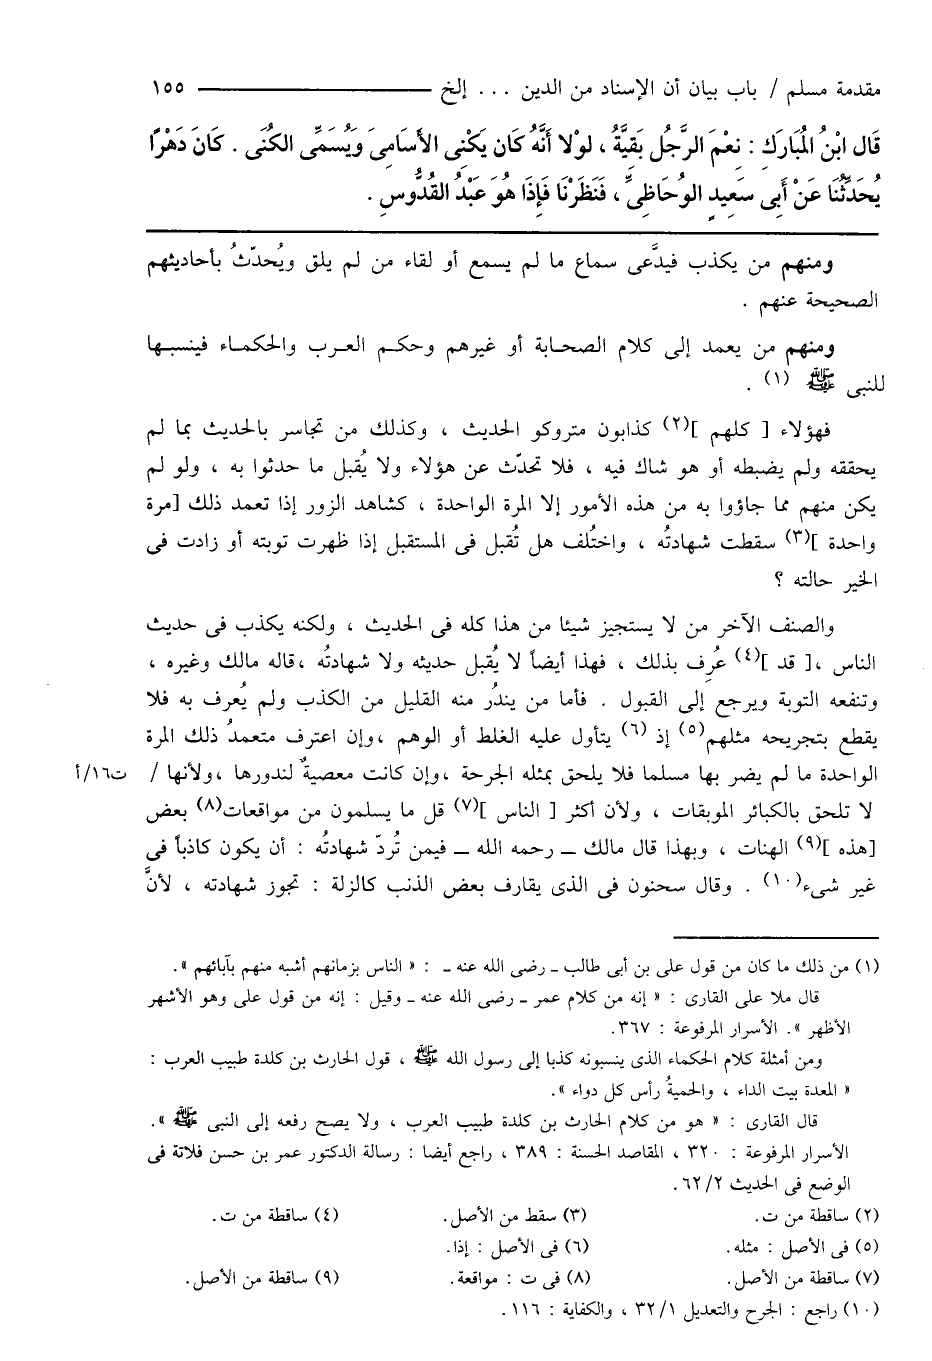 مقدمة مسلم / باب بيان أن الإسناد من الدين ... إلخ ١٥٥
قَال ابْنُ المُبَارَكِ : نِعْمَ الرَّجُل بَقِيَّةُ ، لوْلا أنَّهُ كَان يَكْنِى الأَسَامِىَ وَيُسَمِّى الكُنَى . كَانَ دَهْرًا
يُحَدِّثُنَا عَنْ أَبِى سَعِيدٍ الوُحَاظِىِّ ، فَنَظَرْنَا فَإِذَا هُوَ عَبْدُ القُدُّوسِ .
ومنهم من يكذب فيدَّعى سماع ما لم يسمع أو لقاء من لم يلق ويُحدّثُ بأحاديثهم
الصحيحة عنهم .
ومنهم من يعمد إلى كلام الصحابة أو غيرهم وحكم العرب والحكماء فينسبها
للنبى ﷺ (١) .
فهؤلاء [ كلهم ](٢) كذابون متروكو الحديث ، وكذلك من تجاسر بالحديث بما لم
يحققه ولم يضبطه أو هو شاك فيه ، فلا تحدّث عن هؤلاء ولا يُقبل ما حدثوا به ، ولو لم
يكن منهم مما جاؤوا به من هذه الأمور إلا المرة الواحدة ، كشاهد الزور إذا تعمد ذلك [مرة
واحدة ](٣) سقطت شهادتُه ، واختُلف هل تُقبل فى المستقبل إذا ظهرت توبته أو زادت فى
الخير حالته ؟
والصنف الآخر من لا يستجيز شيئا من هذا كله فى الحديث ، ولكنه يكذب فى حديث
الناس ،[ قد ](٤) عُرِف بذلك ، فهذا أيضاً لا يُقبل حديثه ولا شهادتُه ،قاله مالك وغيره ،
وتنفعه التوبة ويرجع إلى القبول . فأما من يندُر منه القليل من الكذب ولم يُعرف به فلا
يقطع بتجريحه مثلهم(٥) إذ (٦) يتأول عليه الغلط أو الوهم ،وإن اعترف متعمدُ ذلك المرة
الواحدة ما لم يضر بها مسلما فلا يلحق بمثله الجرحة ،وإن كانت معصيةٌ لندورها ،ولأنها / ت١٦/أ
لا تلحق بالكبائر الموبقات ، ولأن أكثر [ الناس ](٧) قل ما يسلمون من مواقعات(٨) بعض
[هذه ](٩) الهنات ، وبهذا قال مالك ــ رحمه الله ــ فيمن تُردّ شهادتُه : أن يكون كاذباً فى
غير شىء(١٠) . وقال سحنون فى الذى يقارف بعض الذنب كالزلة : تجوز شهادته ، لأنَّ
(١) من ذلك ما كان من قول على بن أبى طالب ـ رضى الله عنه ـ : « الناس بزمانهم أشبه منهم بآبائهم ».
قال ملا على القارى : « إنه من كلام عمر ـ رضى الله عنه ـ وقيل : إنه من قول على وهو الأشهر
الأظهر ». الأسرار المرفوعة : ٣٦٧.
ومن أمثلة كلام الحكماء الذى ينسبونه كذبا إلى رسول الله ﷺ ، قول الحارث بن كلدة طبيب العرب :
« المعدة بيت الداء ، والحميةُ رأس كل دواء ».
قال القارى : « هو من كلام الحارث بن كلدة طبيب العرب ، ولا يصح رفعه إلى النبى ﷺ ».
الأسرار المرفوعة : ٣٢٠ ، المقاصد الحسنة : ٣٨٩ ، راجع أيضا : رسالة الدكتور عمر بن حسن فلاتة فى
الوضع فى الحديث ٢/ ٦٢.
(٢) ساقطة من ت. (٣) سقط من الأصل. (٤) ساقطة من ت.
(٥) فى الأصل : مثله. (٦) فى الأصل : إذا.
(٧) ساقطة من الأصل. (٨) فى ت : مواقعة. (٩) ساقطة من الأصل.
(١٠) راجع : الجرح والتعديل ١/ ٣٢ ، والكفاية : ١١٦ .